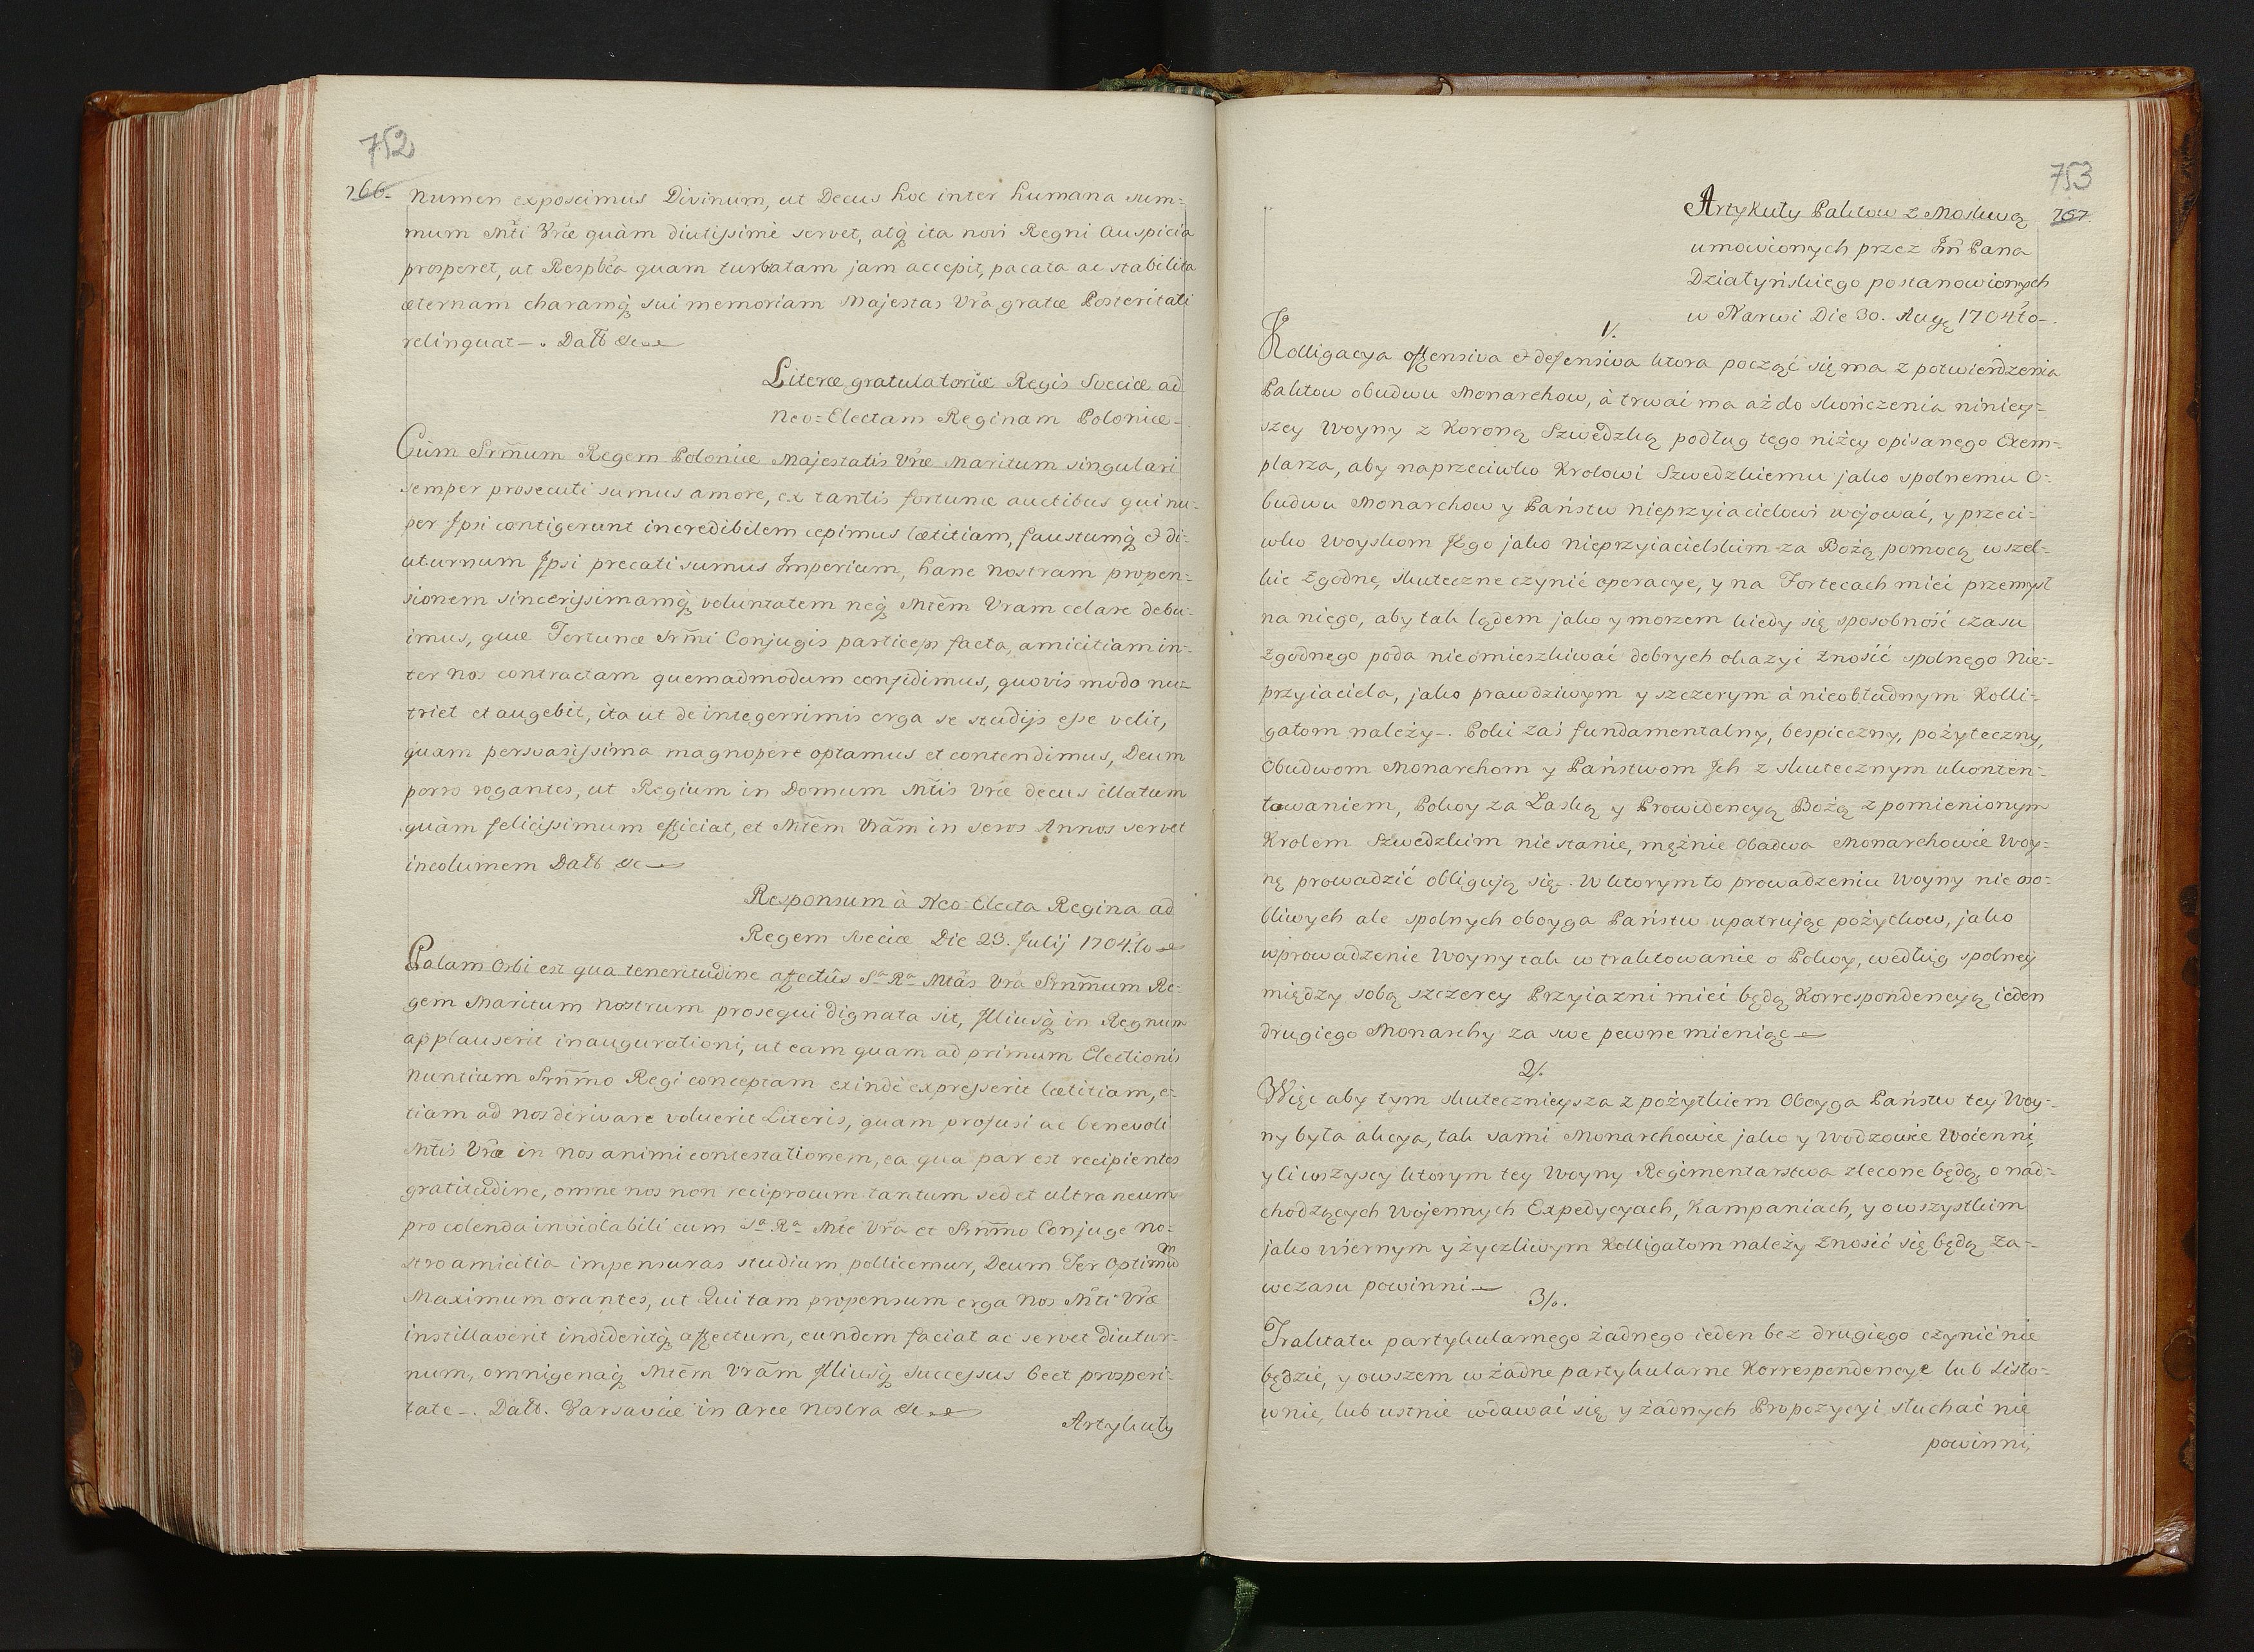 752
766.
Numen exposcimus Divinum, ut Decus hoc inter humana sum-
mum Mti Vræ quàm diutissimè servet, atq ita novi Regni Auspicia
prosperet, ut Respbca quam turbatam jam accepit, pacata ac stabilita
æternam charamq sui memoriam Majestas Vra gratæ Posteritati
relinquat-. Datt &c
Literæ gratulatoriæ Regis Sveciæ ad
Neo-Electam Reginam Poloniæ-
Cùm Srm̃um Regem Poloniæ Majestatis Vræ Maritum singulari
semper prosecuti sumus amore, ex tantis fortunæ auctibus qui nu-
per Ipsi contigerunt incredibilem cepimus lætitiam, faustumq & di-
uturnum Ipsi precati sumus Imperium, hanc nostram propen-
sionem sincerissimamq voluntatem neq Mtẽm Vram celare debu-
imus, quæ Fortunæ Srm̃i Conjugis particeps facta, amicitiam in-
ter Nos contractam quemadmodum confidimus, quovis modo nu-
triet et augebit, ita ut de integerrimis erga se studijs esse velit,
quam persvasissima magnopere optamus et contendimus, Deum
porro rogantes, ut Regium in Domum Mtis Vræ decus illatum
quàm felicissimum efficiat, et Mtẽm Vrãm in seros Annos servet
incolumem Datt &c
Responsum à Neo-Electa Regina ad
Regem Sveciæ Die 23. Julij 1704to
Palam Orbi est qua teneritudine affectûs Sa Ra Mtas Vra Srm̃um Re-
gem Maritum Nostrum prosequi dignata sit, Illiusq in Regnum
applauserit inaugurationi, ut eam quam ad primum Electionis
Nuntium Srm̃o Regi conceptam exindè expresserit lætitiam, e-
tiam ad Nos derivare voluerit Literis, quam profusi ac benevoli
Mtis Vræ in Nos animi contestationem, ea qua par est recipientes
gratitudine, omne nos non reciprocum tantum sed et ultraneum
pro colenda inviolabili cum Sa Ra Mte Vra et Srm̃o Conjuge No-
stro amicitia impensuras studium pollicemur, Deum Ter Optimum
Maximum orantes, ut Qui tam propensum erga Nos Mti Vræ
instillaverit indideritq affectum, eundem faciat ac servet diutur-
num, omnigenaq Mtẽm Vrãm Illiusq Successus beet prosperi-
tate-. Datt. Varsaviæ in Arce Nostra &c
Artykuły
753
767.
Artykuły Paktow z Moskwą
umowionych przez Jm̃ Pana
Działyńskiego postanowionych
w Narwi Die 30. Aug 1704to-.
1/.
Kolligacya offensiva & defensiva ktora począć się ma z potwierdzenia
Paktow obudwu Monarchow, á trwać ma aż do skończenia niniey-
szey Woyny z Koroną Szwedzką podług tego niżey opisanego Exem-
plarza, aby naprzeciwko Krolowi Szwedzkiemu jako spolnemu O-
budwu Monarchow y Państw nieprzyiacielowi wojować, y przeci-
wko Woyskom Jego jako nieprzyiacielskim za Bożą pomocą wszel-
kie zgodne, skuteczne czynić operacye, y na Fortecach mieć przemysł
na niego, aby tak lądem jako y morzem kiedy się sposobność czasu
zgodnego poda nieomieszkiwać dobrych okazyi znosić spolnego Nie-
przyiaciela, jako prawdziwym y szczerym á nieobłudnym Kolli-
gatom należy-. Poki zaś fundamentalny, bespieczny, pożyteczny,
Obudwom Monarchom y Państwom Ich z skutecznym ukonten-
towaniem, Pokoy za Łaską y Prowidencyą Bożą z pomienionym
Krolem Szwedzkim nie stanie, mężnie Obadwa Monarchowie Woy-
nę prowadzić obligują się-. W ktorym to prowadzeniu Woyny nie oso-
bliwych ale spolnych oboyga Państw upatrując pożytkow, jako
wprowadzenie Woyny tak w traktowanie o Pokoy, według spolney
między sobą szczerey Przyiazni mieć będą Korrespondencyą ieden
drugiego Monarchy za swe pewne mieniąc
2/.
Więc aby tym skutecznieysza z pożytkiem Oboyga Państw tey Woy-
ny była akcya, tak sami Monarchowie jako y Wodzowie Woienni,
y ci wszyscy ktorym tey Woyny Regimentarstwa zlecone będą, o nad-
chodzących Wojennych Expedycyach, Kampaniach, y o wszystkim
jako wiernym y życzliwym Kolligatom należy znosić się będą za-
wczasu powinni
3/.
Traktatu partykularnego żadnego ieden bez drugiego czynić nie
będzie, y owszem w żadne partykularne Korrespondencye lub Listo-
wnie, lub ustnie wdawać się y żadnych Propozycyi słuchać nie
powinni,